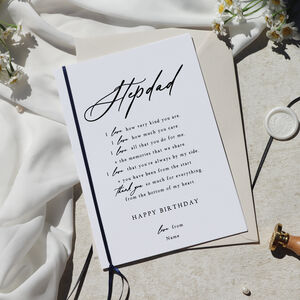 Stepdad
I love how very kind you are.
I love how much you care
I love all that you do for me.
+ the memories that we share
I love that you're always by my side.
+ you have been from the start
thank you so much for everything
from the bottom of my heart
HAPPY BIRTHDAY
love from
Name